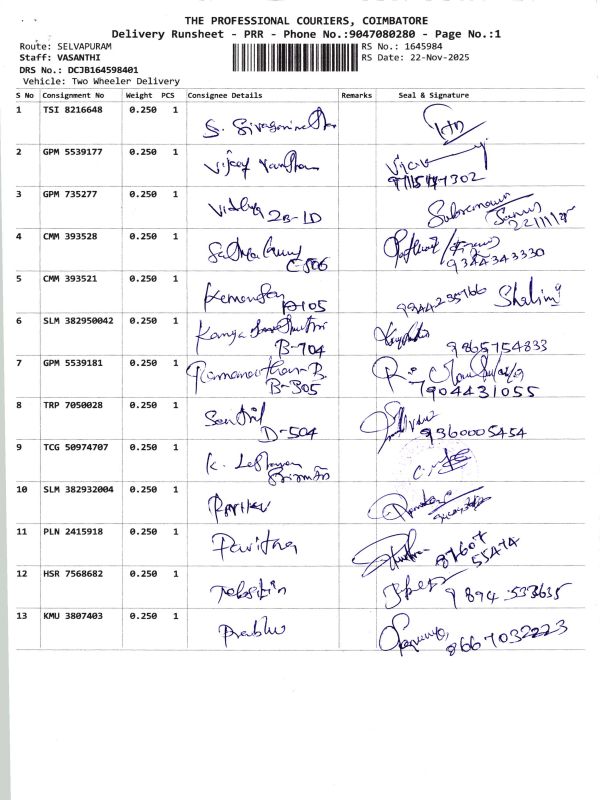 THE PROFESSIONAL COURIERS, COIMBATORE
Delivery Runsheet - PRR - Phone No.:9047080280 - Page No.:1
Route: SELVAPURAM
RS No.: 1645984
Staff: VASANTHI
RS Date: 22-Nov-2025
DRS No.: DCJB164598401
Vehicle: Two Wheeler Delivery
S No Consignment No Weight PCS Consignee Details Remarks Seal & Signature
1 TSI 8216648 0.250 1 S.
2 GPM 5539177 0.250 1 Vijay
3 GPM 735277 0.250 1 Vidhya 2B-1D
22/11/25
4 CMM 393528 0.250 1
C506 9344343330
5 CMM 393521 0.250 1
A105 Shalini
6 SLM 382950042 0.250 1 Kanya
B-704 9865754833
7 GPM 5539181 0.250 1 Ramanathan-B
B-B05 7904431055
8 TRP 7050028 0.250 1 Senthil
D-504 9360005454
9 TCG 50974707 0.250 1 K.
10 SLM 382932004 0.250 1
11 PLN 2415918 0.250 1 Pavithra 87607
55474
12 HSR 7568682 0.250 1 9894533635
13 KMU 3807403 0.250 1 Prabhu 8667032223